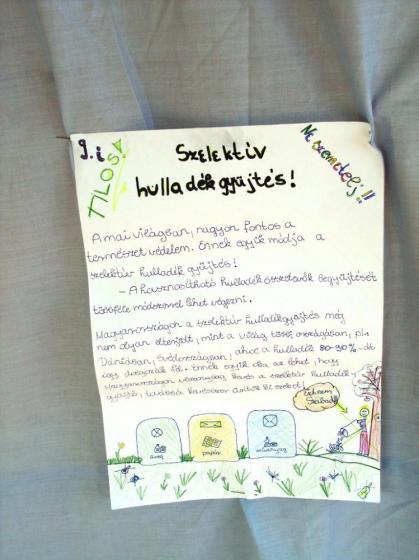 9. i
TILOS!
Szelektív
hulladék gyűjtés!
Ne szemetelj!!
A mai világban, nagyon fontos a
természet védelem. Ennek egyik módja a
szelektív hulladék gyűjtés!
- A hasznosítható hulladék összetevők begyűjtését
többféle módszerrel lehet végezni.
Magyarországon a szelektív hulladékgyűjtés még
nem olyan elterjedt, mint a világ több országában, pl.
Dániában, Svédországban, ahol a hulladék 80-90%-át
így dolgozzák fel. Ennek egyik oka az lehet, hogy
Magyarországon viszonylag kevés a szelektív hulladék-
gyűjtő, továbbá kevesen
Ezt nem
szabad!
üveg
papír
műanyag